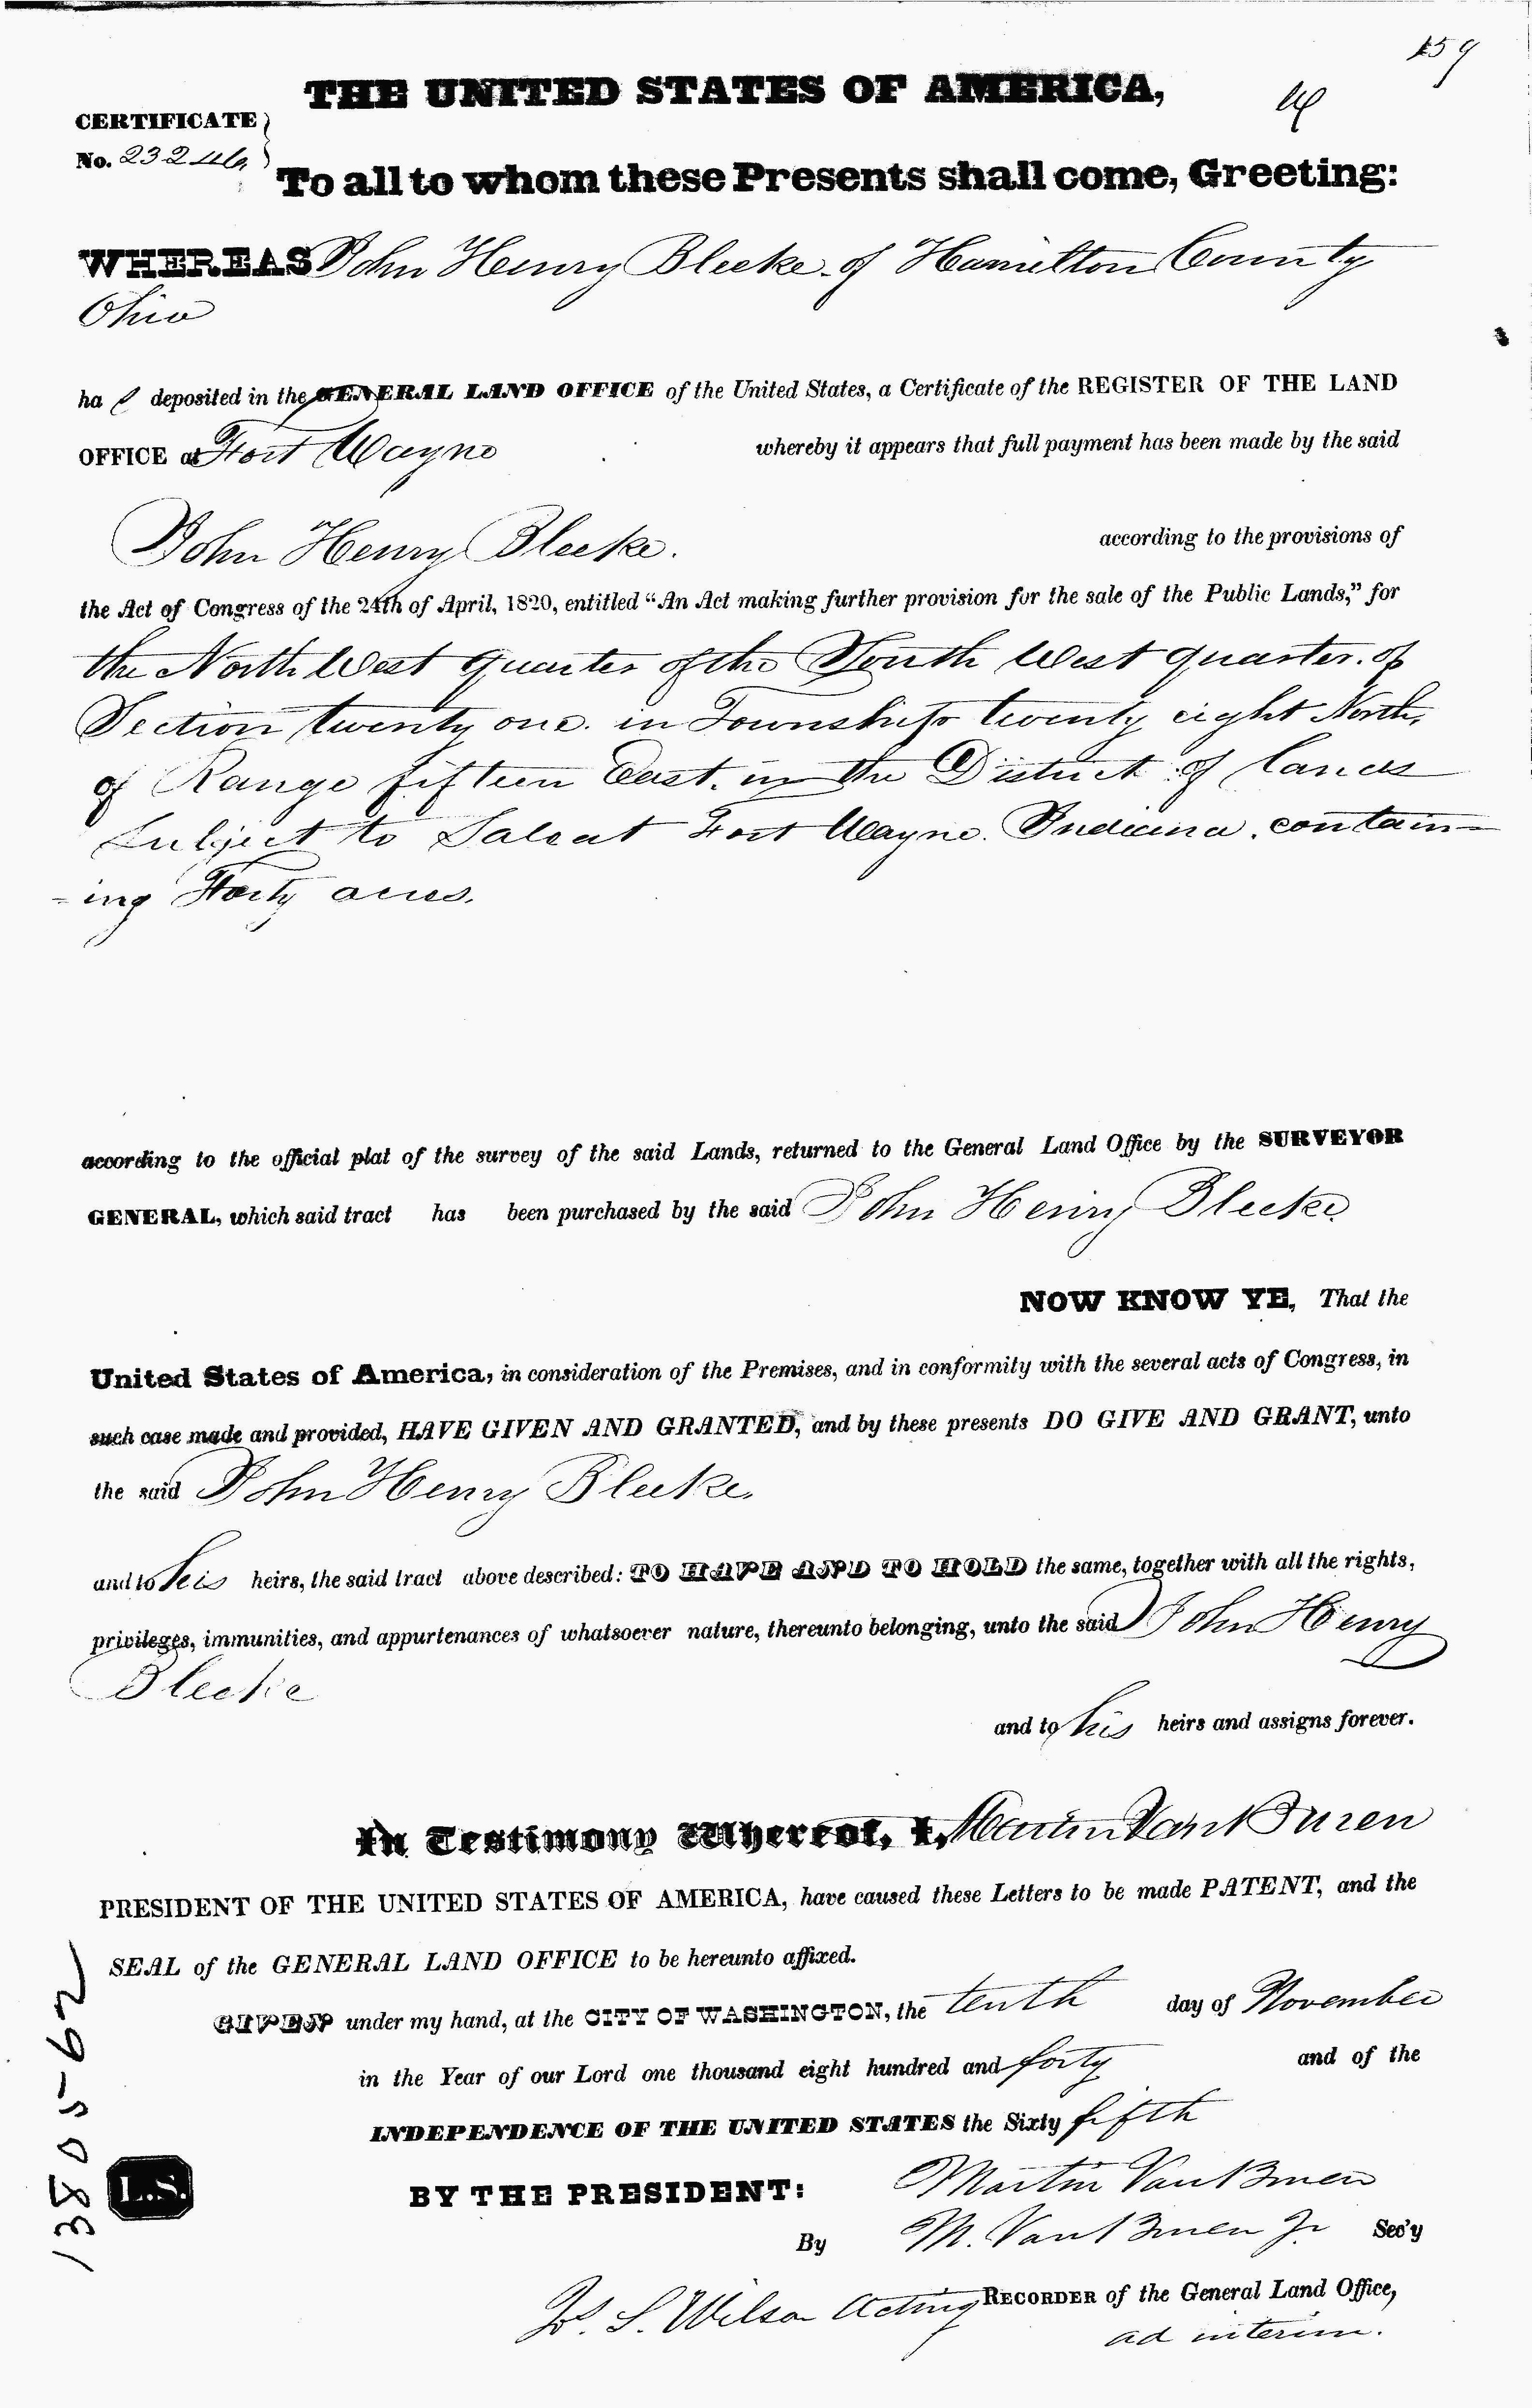 459
THE UNITED STATES OF AMERICA,
CERTIFICATE
No. 23246
To all to whom these Presents shall come, Greeting:
WHEREAS John Henry Bleeke of Hamilton County
Ohio
ha s deposited in the GENERAL LAND OFFICE of the United States, a Certificate of the REGISTER OF THE LAND
OFFICE at Fort Wayne whereby it appears that full payment has been made by the said
John Henry Bleeke. according to the provisions of
the Act of Congress of the 24th of April, 1820, entitled "An Act making further provision for the sale of the Public Lands," for
the North West quarter of the South West quarter. of
Section twenty one. in Township twenty eight North,
of Range fifteen East. in the District of lands
subject to Sale at Fort Wayne. Indiana. contain-
-ing Forty acres.
according to the official plat of the survey of the said Lands, returned to the General Land Office by the SURVEYOR
GENERAL, which said tract has been purchased by the said John Henry Bleeke
NOW KNOW YE, That the
United States of America, in consideration of the Premises, and in conformity with the several acts of Congress, in
such case made and provided, HAVE GIVEN AND GRANTED, and by these presents DO GIVE AND GRANT, unto
the said John Henry Bleeke.
and to his heirs, the said tract above described: TO HAVE AND TO HOLD the same, together with all the rights,
privileges, immunities, and appurtenances of whatsoever nature, thereunto belonging, unto the said John Henry
Bleeke
and to his heirs and assigns forever.
In Testimony Whereof, I, Martin Van Buren
PRESIDENT OF THE UNITED STATES OF AMERICA, have caused these Letters to be made PATENT, and the
SEAL of the GENERAL LAND OFFICE to be hereunto affixed.
GIVEN under my hand, at the CITY OF WASHINGTON, the tenth day of November
in the Year of our Lord one thousand eight hundred and forty and of the
INDEPENDENCE OF THE UNITED STATES the Sixty fifth
BY THE PRESIDENT: Martin Van Buren
By M. Van Buren Jr. Sec'y
Jos. S. Wilson Acting RECORDER of the General Land Office,
ad interim.
L.S.
13805-62